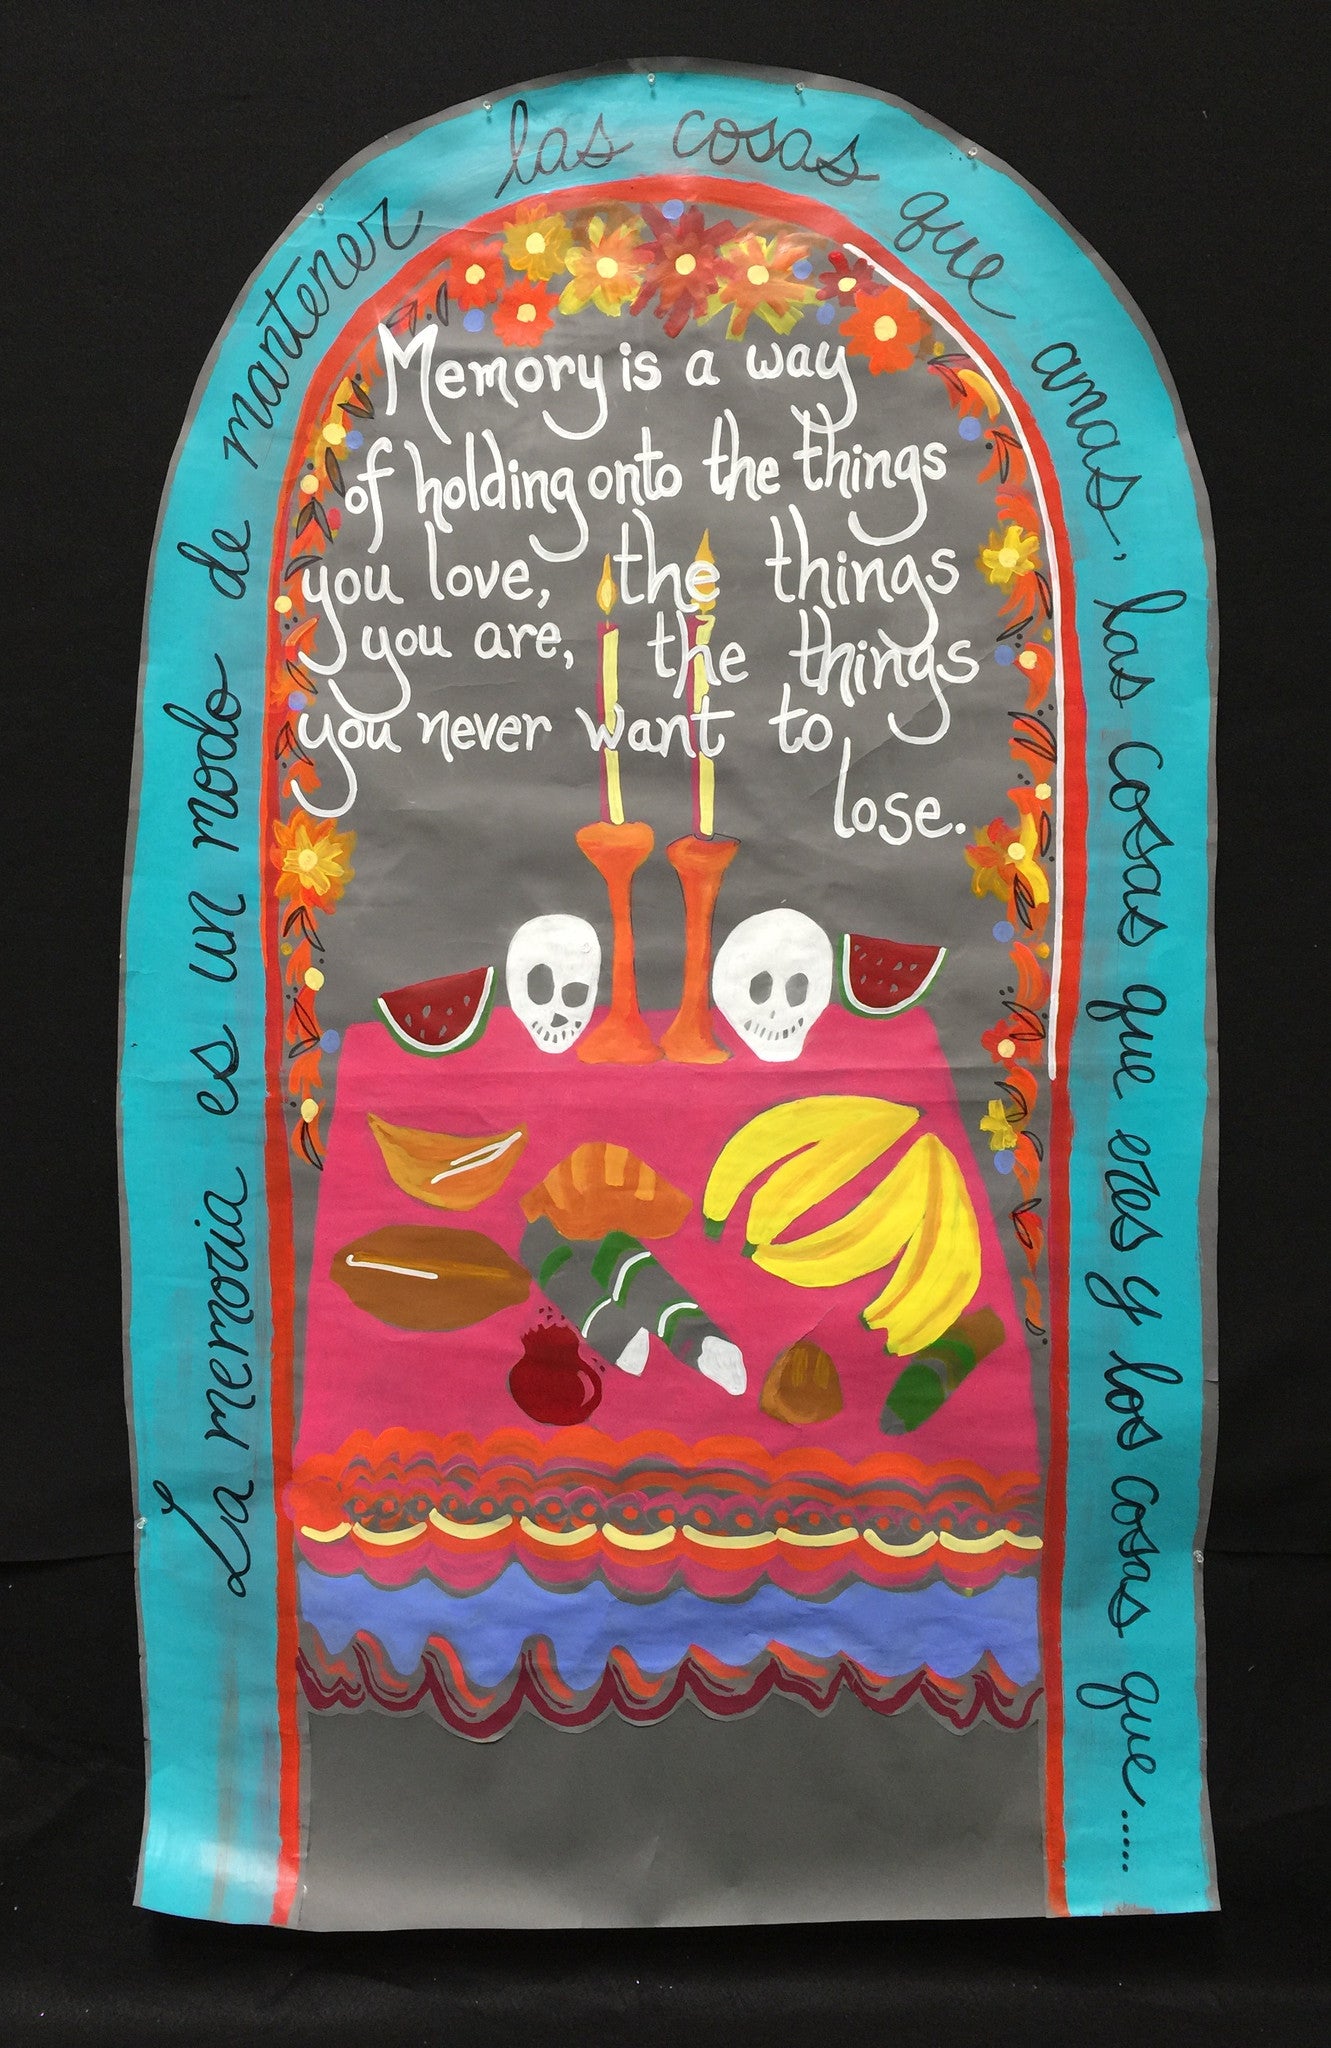 La memoria es un modo de mantener las cosas que amas, las cosas que eres y los cosas que......
Memory is a way
of holding onto the things
you love, the things
you are, the things
you never want to
lose.